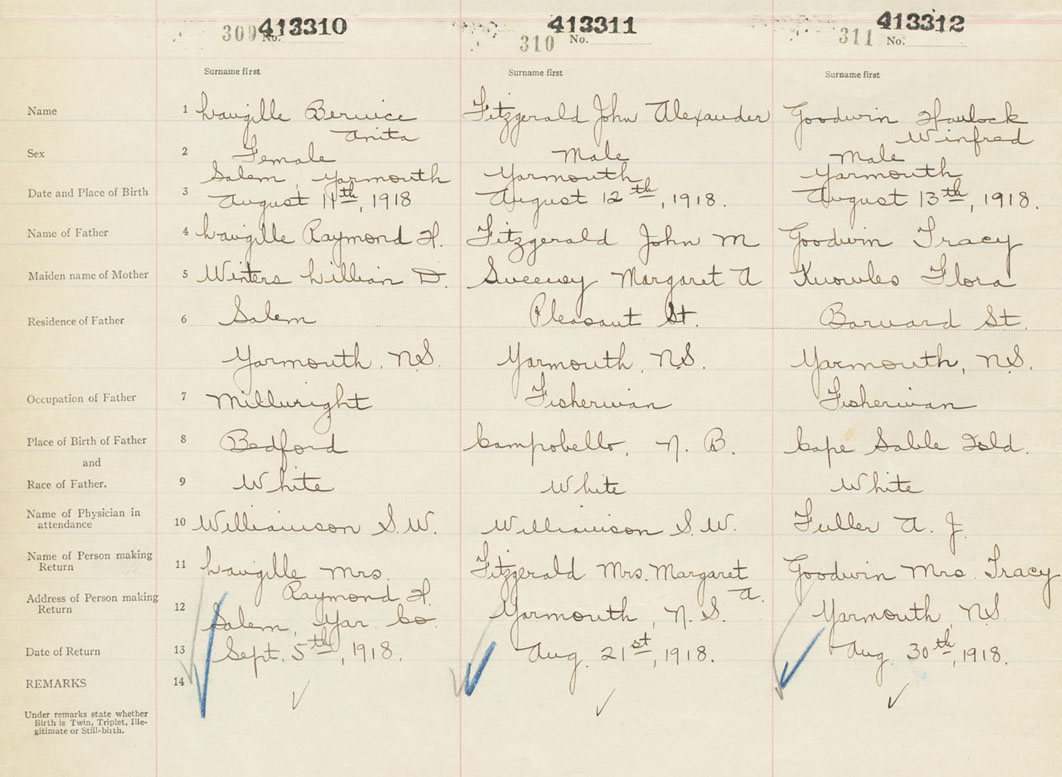 413310 413311 413312
309 No. 310 No. 311 No.
Surname first Surname first Surname first
Name 1 Langille Bernice Fitzgerald John Alexander Goodwin Havlock
Anita Winfred
Sex 2 Female Male Male
Salem, Yarmouth Yarmouth Yarmouth
Date and Place of Birth 3 August 11th, 1918 August 12th, 1918. August 13th, 1918.
Name of Father 4 Langille Raymond H. Fitzgerald John M Goodwin Tracy
Maiden name of Mother 5 Winters Lillian D. Sweeney Margaret A Knowles Flora
Residence of Father 6 Salem Pleasant St. Barnard St.
Yarmouth, N.S. Yarmouth, N.S. Yarmouth, N.S.
Occupation of Father 7 Millwright Fisherman Fisherman
Place of Birth of Father 8 Bedford Campobello, N. B. Cape Sable Isld.
and
Race of Father. 9 White White White
Name of Physician in
attendance 10 Williamson S.W. Williamson S.W. Fuller A. J.
Name of Person making
Return 11 Langille Mrs. Fitzgerald Mrs. Margaret Goodwin Mrs. Tracy
Raymond H. A.
Address of Person making
Return 12 Salem, Yar. Co. Yarmouth, N.S. Yarmouth, N.S.
Date of Return 13 Sept. 5th, 1918. Aug. 21st, 1918. Aug. 30th, 1918.
REMARKS 14
Under remarks state whether
Birth is Twin, Triplet, Ille-
gitimate or Still-birth.